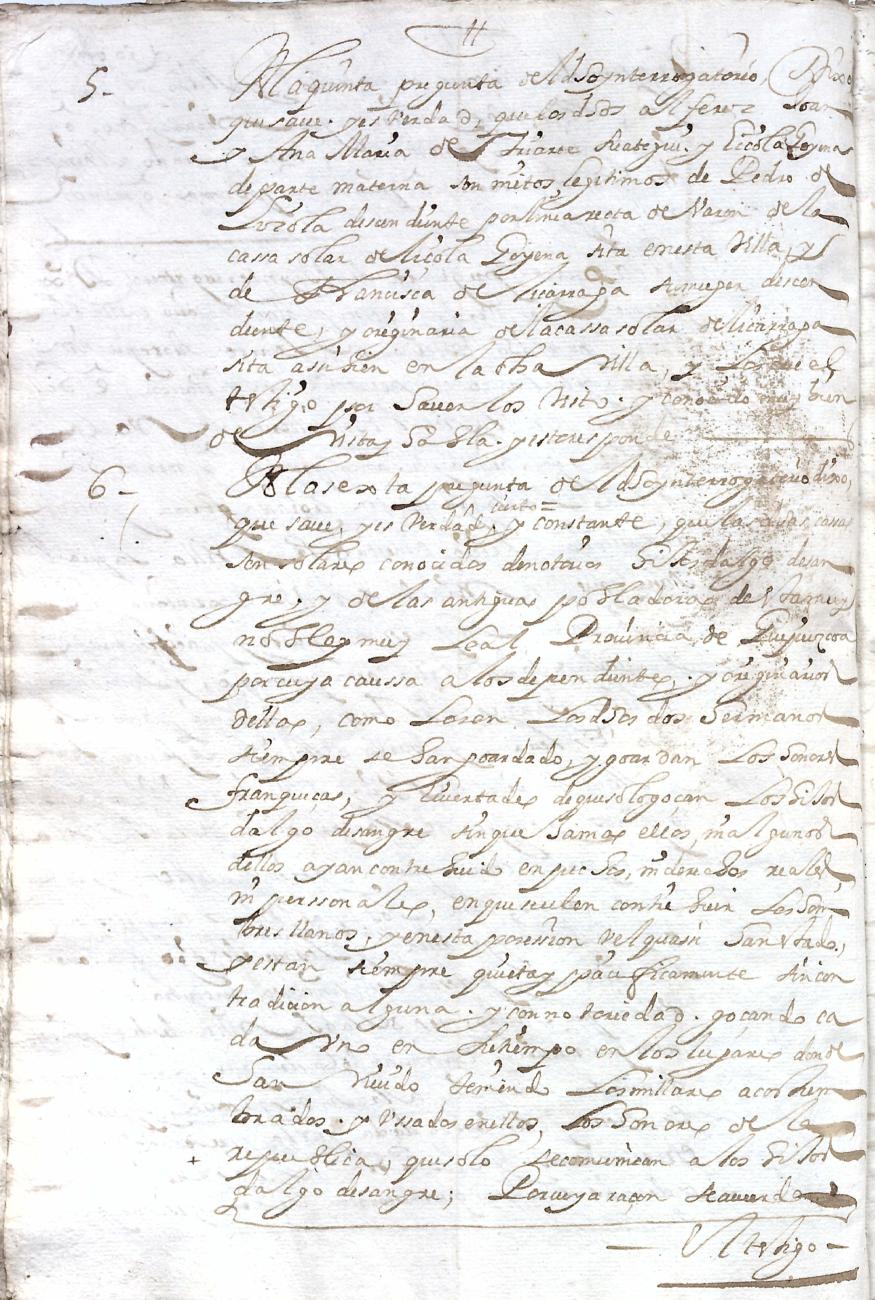 5-
A la quinta pregunta del dho ynterrogatorio, Dixo
que save. y es verdad, que los dhos alferez Joan
y Ana Maria de Yriarte y Licola Goyena
de parte materna son nietos legitimos de Pedro de
Licola descendiente por linia recta de Varon de la
cassa solar de licola Goyena sita en esta Villa, y
de Francisca de licarraga su muger descen
diente, y originaria de la cassa solar de licarraga
sita assi bien en la dha Villa, y el
testigo por haverlos visto. y conocido muy bien
de Vista y habla. y esto responde
6-
A la sexta pregunta del dho ynterrogatorio dixo,
que save, y es Verdad, cierto= y constante, que las dhas casas
son solares conocidos de notorios hijosdalgo de san
gre, y de las antiguas pobladoras de esta muy
noble y muy Leal Provincia de Guipuzcoa
por cuya caussa a los dependientes, y originarios
dellas, como Lo son Los dhos dos hermanos
siempre se han goardado, y goardan Los honores
franqueças, y livertades de que solo goçan Los hijos
dalgo de sangre sin que Jamas ellos, ni algunos
dellos ayan contribuido en pechos, ni derechos reales
ni perssonales, en que suelen contribuir Los hom
bres llanos, y en esta posession vel quasi han estado,
y estan siempre quieta y pacificamente sin con
tradicion alguna. y con notoriedad. goçando ca
da Vno en su tiempo en los lugares donde
han Vivido teniendo Los millares acostum
brados. y Vssados en ellos, Los honores de la
republica, que solo se comunican a los hijos
dalgo de sangre; Por cuya raçon se acuerda
— El testigo —